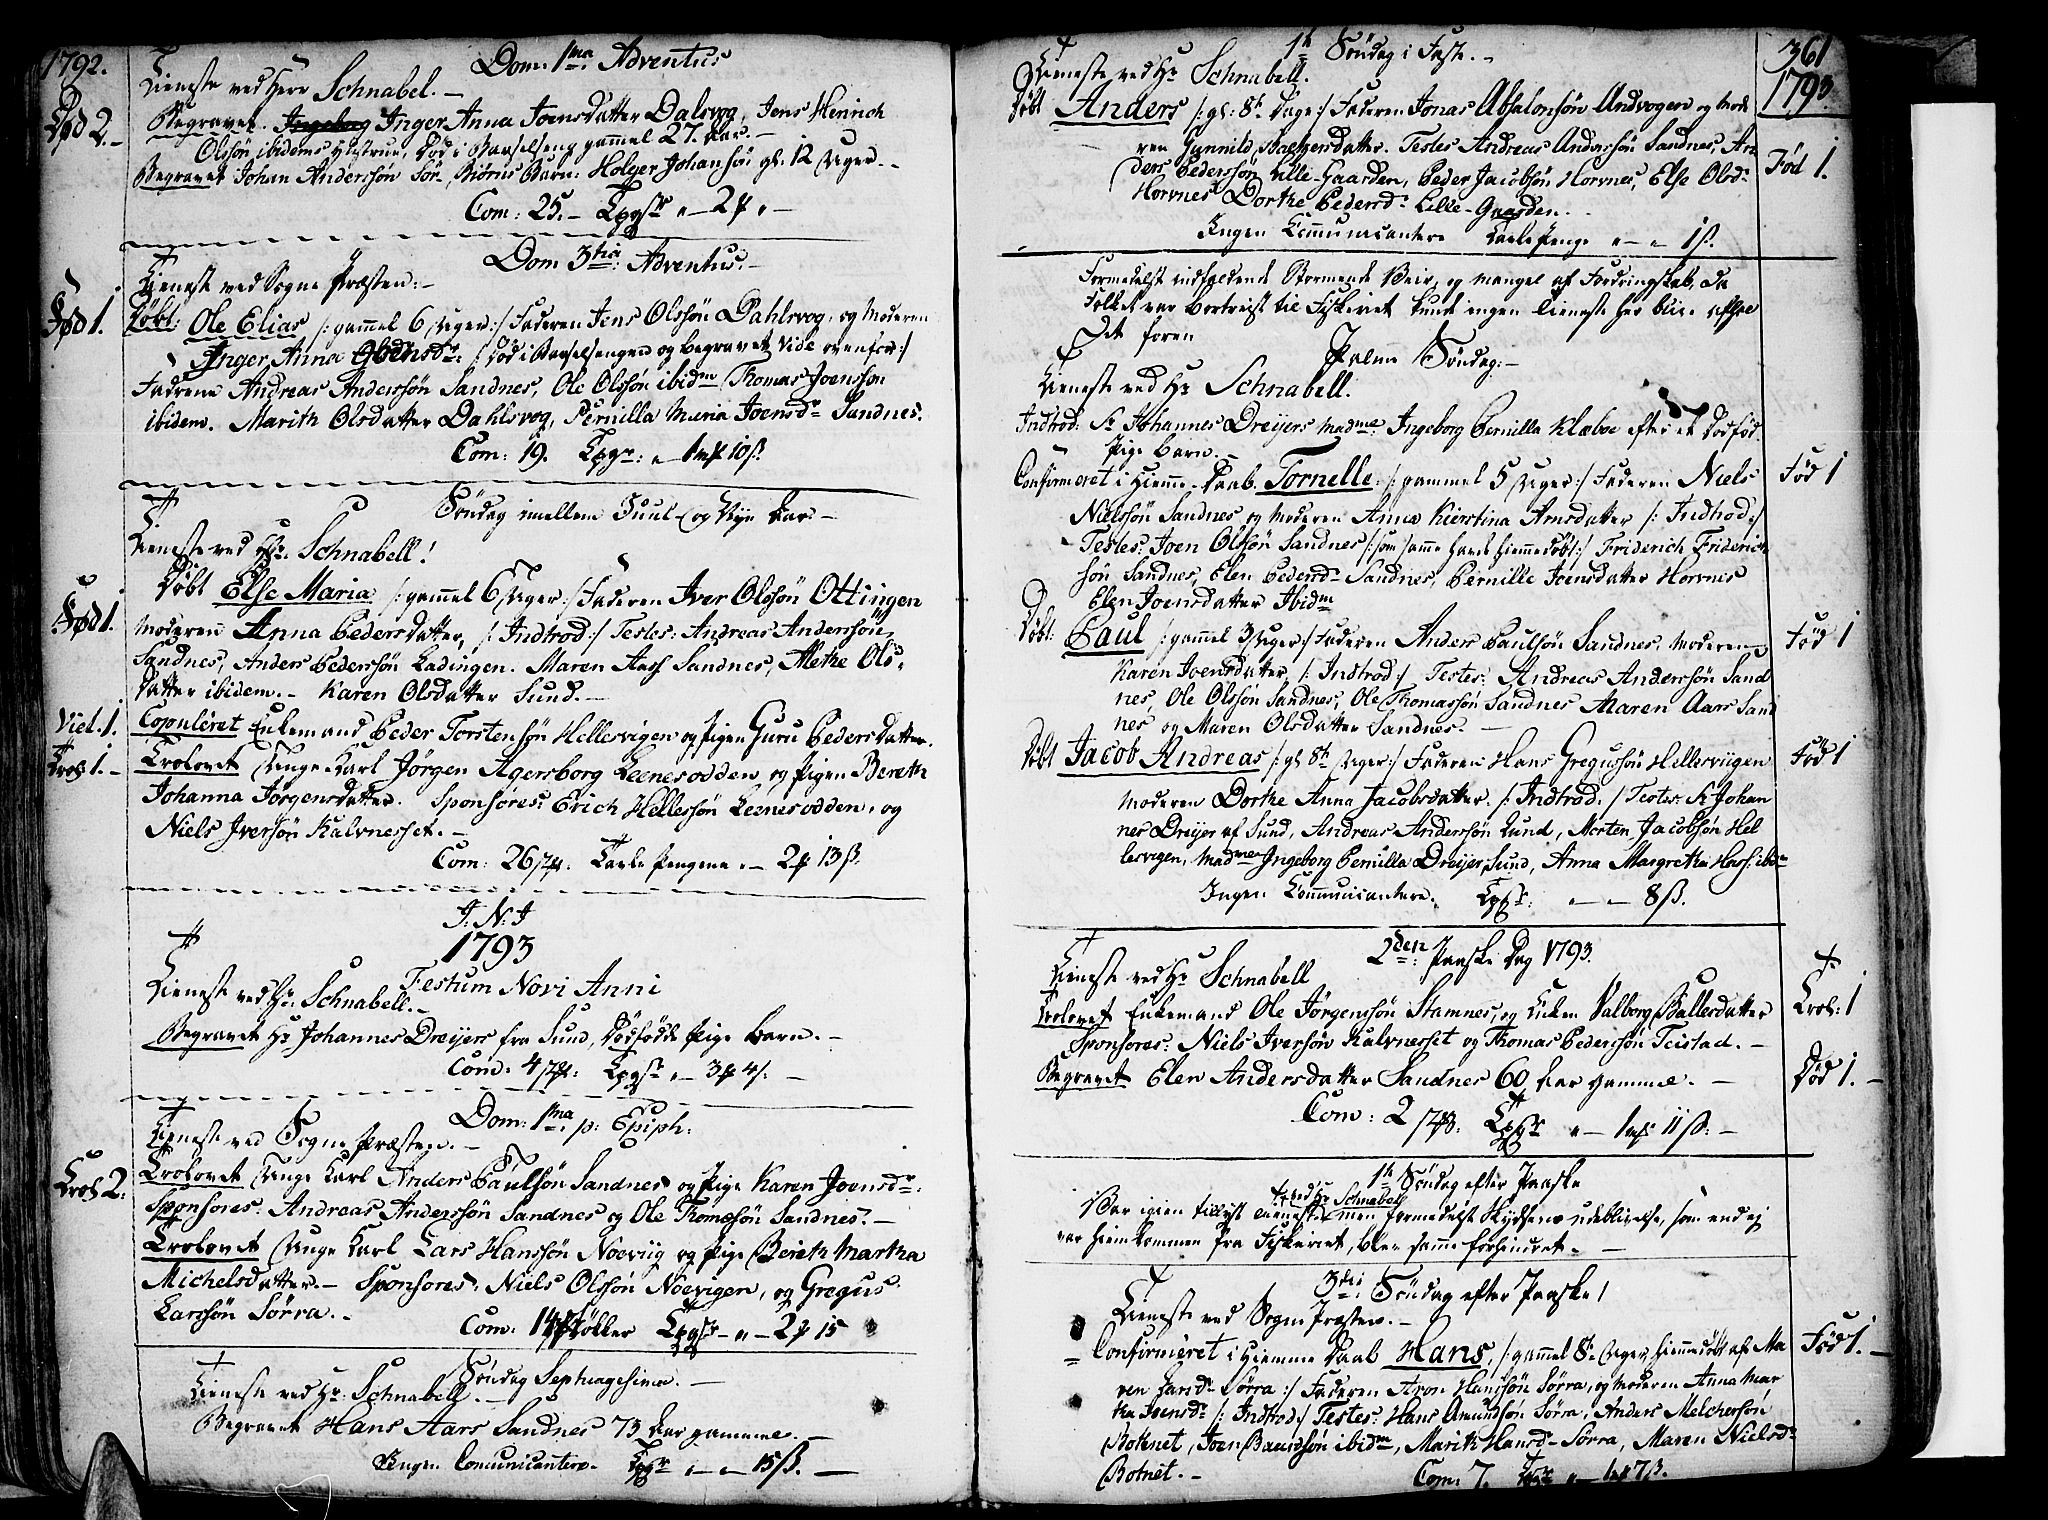 1792.
Dom: 1ma Adventus
Tieneste ved Herr Schnabel. –
Død 2. –
Begravet. Inger Anna Joensdatter Dalsvog, Jens Henrich
Olssøn ibidems Hustrue, død i Barselseng gammel 27. Aar. –
Begravet Johan Anderssøn Sør-Biørns Barn: Holger Johansøn gl: 12 Uger. –
Com: 25. –
Dom 3tia: Adventus. –
Tieneste ved Sogne Præsten: –
Fød 1.
Døbt: Ole Elias /: gammel 6 Uger :/ Faderen Jens Olssøn Dahlsvog, og Moderen
Inger Anna /: død i Barselsengen og begravet vide ovenfor :/
Fadrene Andreas Anderssøn Sandnes, Ole Olssøn ibidm Thomas Joenssøn
ibidem. Marith Olsdatter Dahlsvog, Pernilla Maria Joensdr Sandnes.
Com: 19. 1 10 ß.
Søndag imellem Juul og Nyt Aar. –
Tieneste ved Hr. Schnabell!
Fød 1.
Døbt Else Maria /: gammel 6 Uger :/ Faderen Iver Olssøn Ottingen
Moderen Anna Pedersdatter, /: Introd :/ Testes: Andreas Anderssøn
Sandnes, Anders Pederssøn Ladingen. Maren Aars Sandnes, Methe Ols-
datter ibidem. – Karen Olsdatter Sund. –
Viet. 1.
Copuleret Enkemand Peder Torstensøn Hellesvigen og Pigen Guru Pedersdatter.
Trol: 1. –
Trolovet Unge Karl Jørgen Agersborg Leenesodden, og Pigen Bereth
Johanna Jørgensdatter. Sponsores: Erich Hellessøn Leenesodden, og
Niels Iversøn Kalvnesset. –
Com: 26 Tavle Pengene 2 13 ß.
J: N: J
1793
Festum Novi Anni
Tieneste ved Hr. Schnabell. –
Begravet Hr Johannes Dreijers fra Sund, Dødfødde Pige Barn. –
Com: 4 3 4
Dom: 1ma: p: Epiph:
Tieneste ved Sogne Præsten. –
Trol: 2.
Trolovet Unge Karl Anders Paulsøn Sandnes og Pige Karen Joensdr:
Sponsores: Andreas Anderssøn Sandnes og Ole Thomæsøn Sandnes. –
Trolovet Unge Karl Lars Hanssøn Noeviig og Pige Bereth Martha
Michelsdatter. – Sponsores: Niels Olssøn Noevigen, og Gregus
Larssøn Sørra. –
Com: 14 2 15
Søndag Septuagesima. –
Tieneste ved Hr. Schnabell. –
Begravet Hans Aars Sandnes 73 Aar gammel. –
Ingen Comunicantere. 15 ß. –
361
1793
1te Søndag i Faste. –
Tieneste ved Hr Schnabell.
Døbt Anders /: gl: 8te Dage :/ Faderen Jonas Absalonsøn Andvogen og Mode
ren Gunnild Testes Andreas Anderssøn Sandnes, An
ders Pederssøn Lille-Gaarden, Peder Jacobsøn Horvnes, Else Olsdr
Fød 1.
Horvnes Dorthe Pedersdr Lille-Gaarden.
Ingen Communicantere Tavle Penge 1 ß.
Formedelst indfaldende Stormende Veir, og mangel af Fordringskab, da
Folket var bortreist til Fiskeriet kunde ingen Tieneste her blive efter
Det foren
Palme Søndag: –
Tieneste ved Hr Schnabell.
Introd: Sr Johannes Dreijers Madme Ingeborg Pernilla Klæboe efter et Dødfød
Pige Barn. –
Confirmeret i Hiemme-Daab. Tornelle. /: gammel 5 Uger :/ Faderen Niels
Fød 1
Nielssøn Sandnes og Moderen Anna Kierstina Arnsdatter /: Introd :/
Testes: Joen Olssøn Sandnes /: som samme havde hiemmedøbt :/ Friderich Friderich
søn Sandnes, Elen Pedersdr Sandnes, Pernille Joensdatter Horvnes
Elen Joensdatter Ibidm
Døbt: Paul /: gammel 3 Uger :/ Faderen Anders Paulsøn Sandnes, Moderen
Fød 1
Karen Joensdatter /: Introd :/ Testes: Andreas Anderssøn Sand
nes, Ole Olssøn Sandnes, Ole Thomassøn Sandnes Maren Aars Sand
nes og Maren Olsdatter Sandnes. –
Døbt Jacob Andreas /: gl 8te Uger :/ Faderen Hans Gregussøn Hellesviigen
Fød 1
Moderen Dorthe Anna Jacobsdatter. /: Introd. :/ Testes: Sr Johan
nes Dreijer af Sund, Andreas Anderssøn Lund, Morten Jacobsøn Hel
lesvigen, Madmen Ingeborg Pernilla Dreijer Sund, Anna Margretha Hass: ibdm
Ingen Communicantere. 8 ß.
2den: Paaske Dag 1793.
Tieneste ved Hr Schnabell
Trolovet Enkemand Ole Jørgenssøn Stamnes, og Enken Valborg Ballesdatter
Trol: 1
Sponsores: Niels Iversøn Kalvnesset og Thomas Pederssøn Teistad. –
Begravet Elen Andersdatter Sandnes 60 Aar gamme. –
Død 1. –
Com: 2 1 11 ß: –
1te Søndag efter Paaske
Var igien tillyst Tieneste ved Hr Schnabell men formedelst Skydsens udeblivelse, som end ej
var hiemkommen fra Fiskeriet, blev samme forhindret. –
3die: Søndag efter Paaske!
Tieneste ved Sogne Præsten. –
Confirmeret i Hiemme Daab Hans, /: gammel 8te Uger, hiemmedøbt af Ma
Fød 1. –
ren Larsdr Sørra :/ Faderen Aron Hanssøn Sørra, og Moderen Anna Mar
tha Joensdr /: Introd :/ Testes: Hans Amundsøn Sørra, Anders Melchersøn
Botnet, Joen ibidm, Marith Hansdr Sørra, Maren Nielsdr
Botnet. –
Com: 7. 1 7 ß.